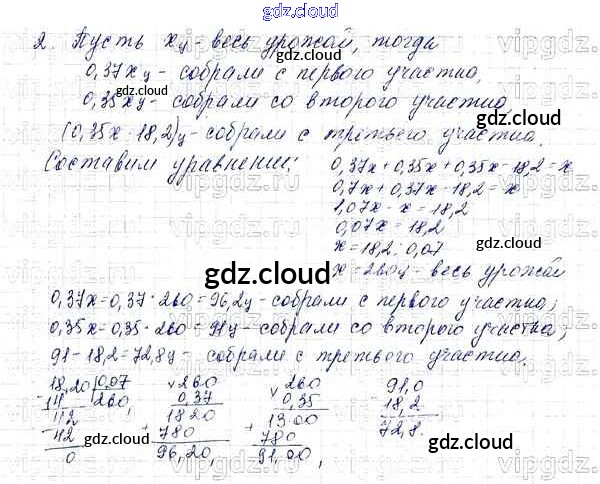 gdz.cloud
gdz.cloud
2. Пусть x ц - весь урожай, тогда
0,37x ц - собрали с первого участка,
0,35x ц - собрали со второго участка,
(0,35x - 18,2) ц - собрали с третьего участка.
Составим уравнение:
0,37x + 0,35x + 0,35x - 18,2 = x
0,7x + 0,37x - 18,2 = x
1,07x - x = 18,2
0,07x = 18,2
x = 18,2 : 0,07
x = 260 ц - весь урожай
0,37x = 0,37 · 260 = 96,2 ц - собрали с первого участка;
0,35x = 0,35 · 260 = 91 ц - собрали со второго участка;
91 - 18,2 = 72,8 ц - собрали с третьего участка.
18,20 | 0,07
- 14 260,
42
- 42
0
x 260
0,37
1820
+ 780
96,20,
x 260
0,35
1300
+ 780
91,00,
- 91,0
18,2
72,8
gdz.cloud
gdz.cloud
gdz.cloud
gdz.cloud
gdz.cloud
gdz.cloud
gdz.cloud
gdz.cloud
gdz.cloud